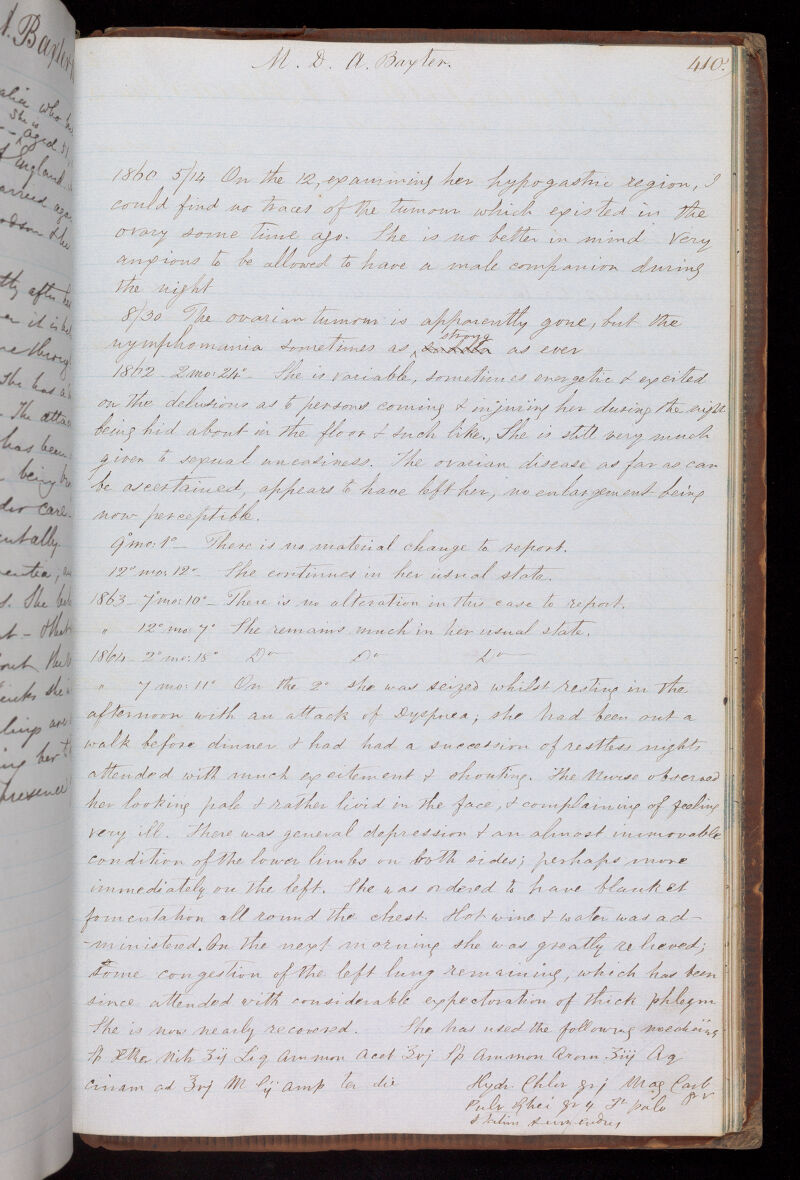 M. D. A. Baxter. 410.
1860 5/14 On the 12, examining her hypogastric region, I
could find no traces of the tumour which existed in the
ovary some time ago. She is no better in mind Very
anxious to be allowed to have a male companion during
the night
8/30 The ovarian tumour is apparently gone, but the
nymphomania sometimes as strong as ever
1862 - 2 mo: 24º - She is variable, sometimes energetic & excited
on the delusions as to persons coming & injuring her during the night
being hid about in the floor & such like. She is still very much
given to sexual uneasiness. The ovarian disease as far as can
be ascertained, appears to have left her, no enlargement being
now perceptible.
9º mo: 1º - There is no material change to report.
12º mo: 12º - She continues in her usual state.
1863 - 7º mo: 10º - There is no alteration in this case to report.
" 12º mo 7º She remains much in her usual state.
1864 - 2º mo: 15º Dº Dº Dº
" 7 mo: 11º On the 2º she was seized whilst resting in the
afternoon with an attack of Dyspnea; she had been out a
walk before dinner & had had a succession of restless nights
attended with much excitement & shouting. The Nurse observed
her looking pale & rather livid in the face, & complaining of feeling
very ill. There was general depression & an almost immovable
condition of the lower limbs on both sides; perhaps more
immediately on the left. She was ordered to have blanket
fomentation all round the chest. Hot wine & water was ad-
-ministered. On the next morning she was greatly relieved;
some congestion of the left lung remaining, which has been
since attended with considerable expectoration of thick phlegm
She is now nearly recovered. She has used the following medicine
Sp Ether Nit: 3ij Liq Ammon Acet 3vj Sp Ammon Arom 3iij Aq
cinam ad 3vj M Cap ter die Hydr Chlor gr j Mag Carb
Pulv Rhei gr v